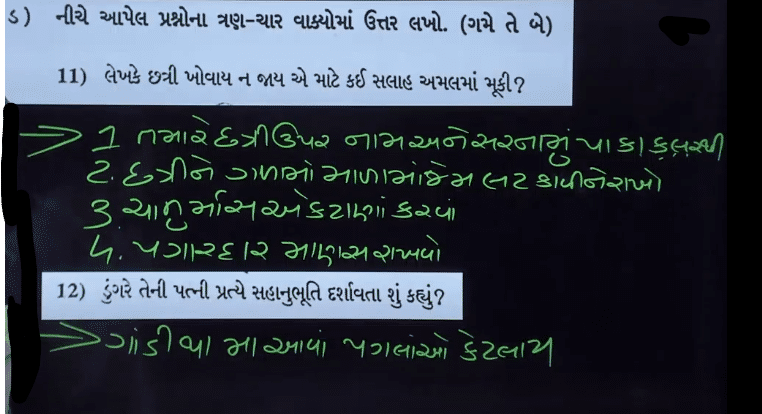 ડ) નીચે આપેલ પ્રશ્નોના ત્રણ-ચાર વાક્યોમાં ઉત્તર લખો. (ગમે તે બે)
11) લેખકે છત્રી ખોવાય ન જાય એ માટે કઈ સલાહ અમલમાં મૂકી?
1 તમારે છત્રી ઉપર નામ અને સરનામું પાકા કલરથી
2. છત્રીને ગળામાં માળામાં જેમ લટકાવીને રાખો
3. ચાતુર્માસ એકટાણાં કરવાં
4. પગારદાર માણસ રાખવો
12) ડુંગરે તેની પત્ની પ્રત્યે સહાનુભૂતિ દર્શાવતા શું કહ્યું?
ગાંડી થા મા આવાં પગલાંઓ કેટલાય